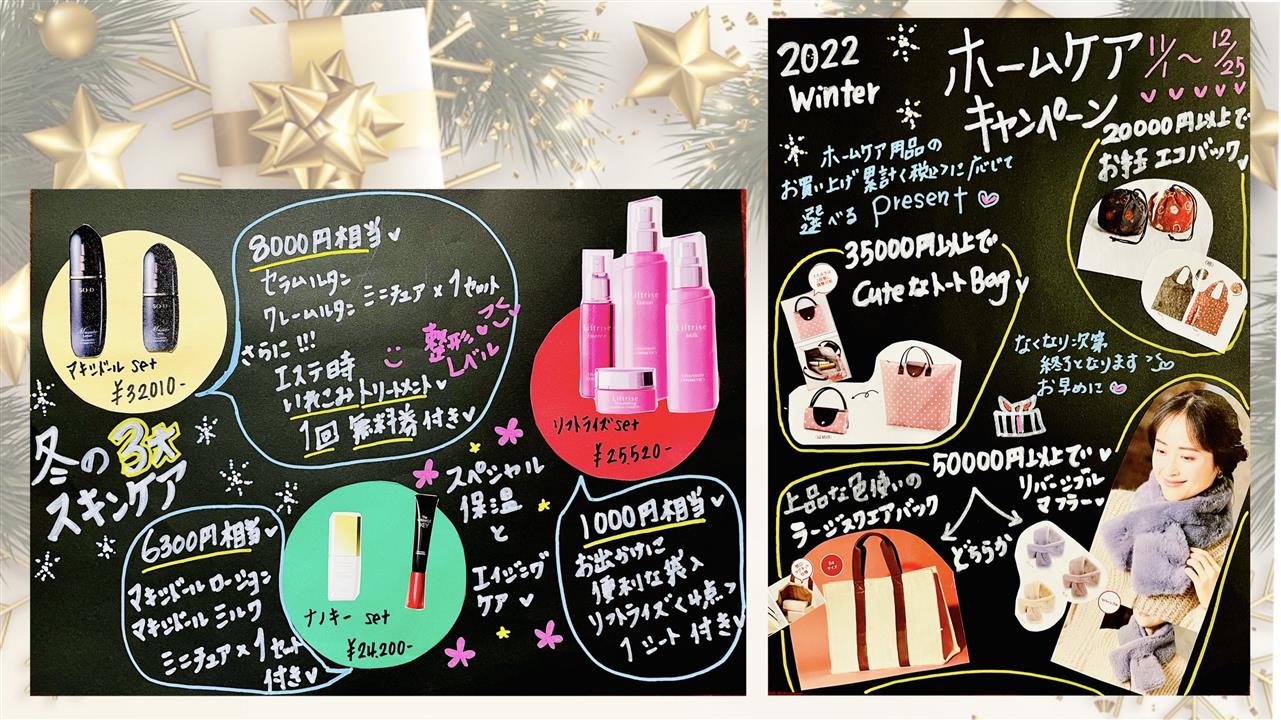 8000円相当
セラムルタン
クレームルタン ミニチュア×1セット
さらに!!!
エステ時
いれこみトリートメント
1回 無料券付き
整形
レベル
SO-D
マキシドール set
¥32010-
冬の3大
スキンケア
Liftrise
Lotion
Liftrise
Milk
Liftrise
リフトライズset
¥25,520-
スペシャル
保温
と
エイジング
ケア
6300円相当
マキシドール ローション
マキシドール ミルク
ミニチュア×1セット
付き
KEY
ナノキー set
¥24,200-
1000円相当
お出かけに
便利な袋入
リフトライズ<4点>
1シート付き
2022
Winter
ホームケア
キャンペーン
11/1〜12/25
ホームケア用品の
お買い上げ累計<税込>に応じて
選べる present
20000円以上で
お手玉エコバック
35000円以上で
CuteなトートBag
なくなり次第
終了となります
お早めに
50000円以上で
リバーシブル
マフラー
どちらか
上品な色使いの
ラージスクエアバック